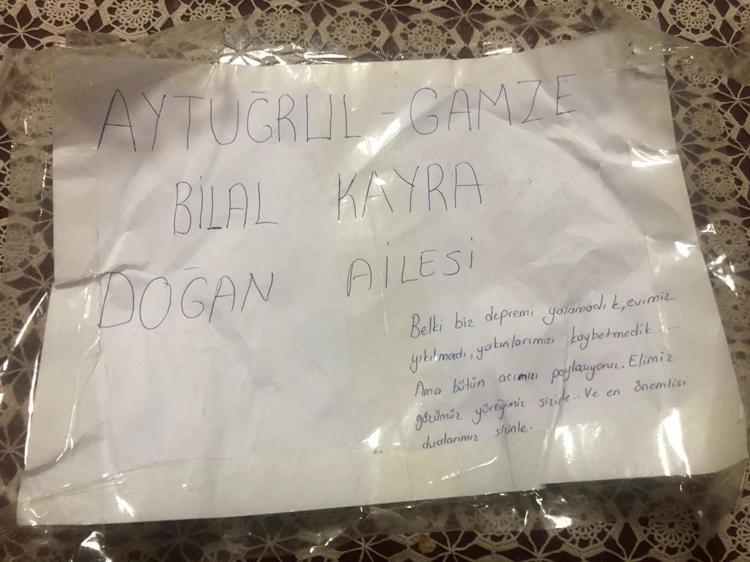 AYTUĞRUL - GAMZE
BİLAL KAYRA
DOĞAN AİLESİ
Belki biz depremi yaşamadık, evimiz
yıkılmadı, yakınlarımızı kaybetmedik ....
Ama bütün acınızı paylaşıyoruz. Elimiz
gözümüz yüreğimiz sizinle.. Ve en önemlisi
dualarımız sizinle.